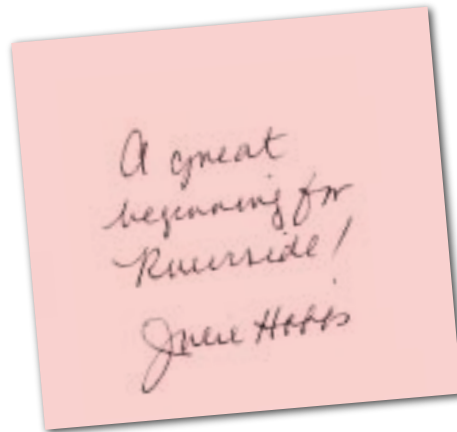 A great
beginning for
Riverside!
Julie Hobbs